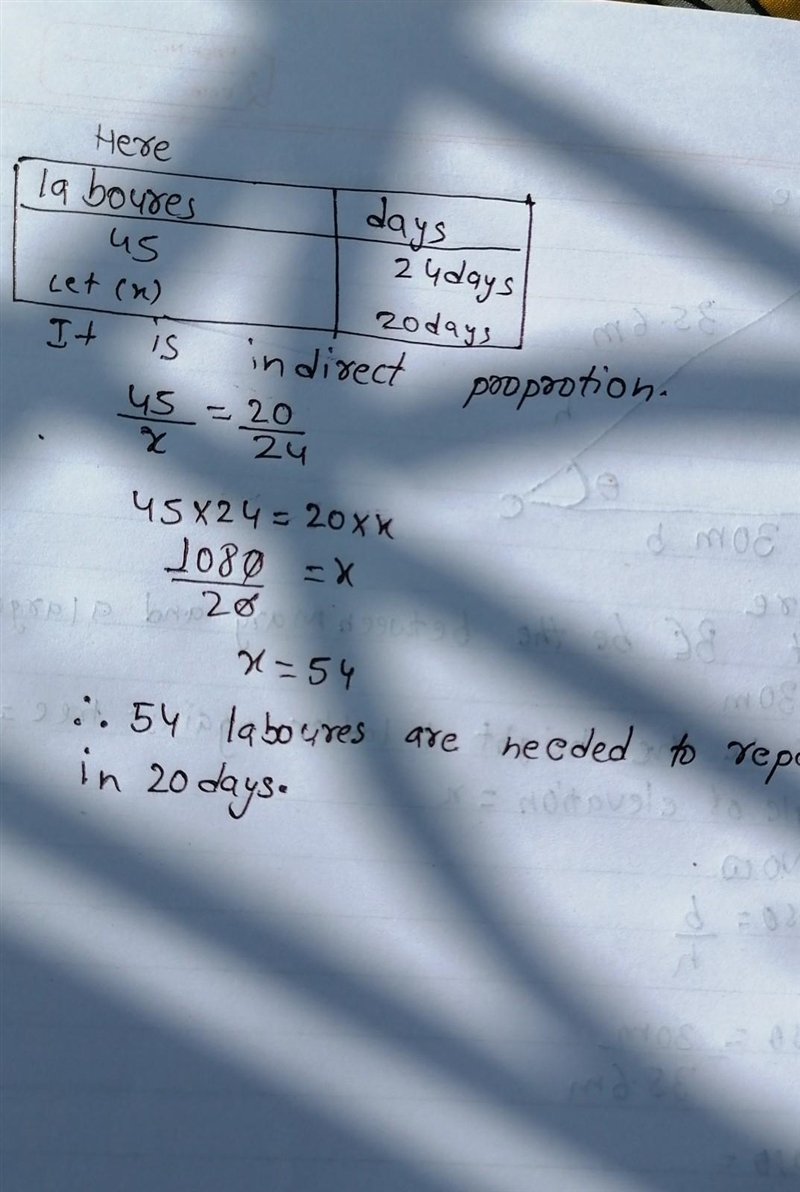 Here
laboures days
45 24days
Let (x) 20days
It is indirect proprotion.
45/x = 20/24
45×24 = 20×x
1080/20 = x
x = 54
∴ 54 laboures are needed to
in 20 days.